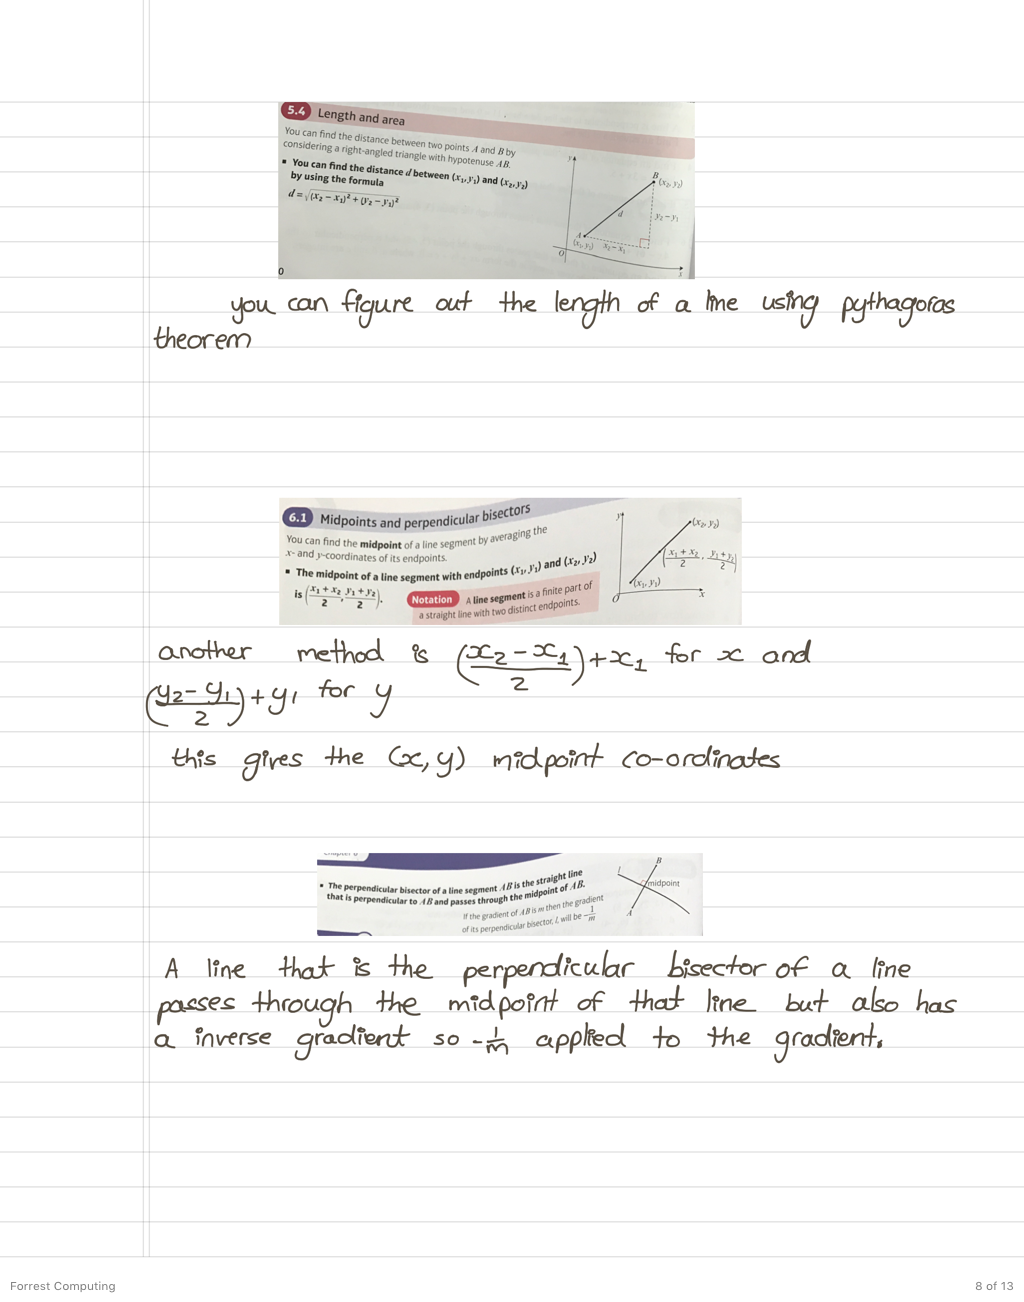 5.4 Length and area
You can find the distance between two points A and B by
considering a right-angled triangle with hypotenuse AB.
▪ You can find the distance d between (x₁, y₁) and (x₂, y₂)
by using the formula
d = √((x₂ − x₁)² + (y₂ − y₁)²)
y
B
(x₂, y₂)
d
y₂ − y₁
A
(x₁, y₁)
x₂ − x₁
O
x
0
you can figure out the length of a line using pythagoras
theorem
6.1 Midpoints and perpendicular bisectors
You can find the midpoint of a line segment by averaging the
x- and y-coordinates of its endpoints.
▪ The midpoint of a line segment with endpoints (x₁, y₁) and (x₂, y₂)
is ((x₁ + x₂)/2, (y₁ + y₂)/2).
Notation A line segment is a finite part of
a straight line with two distinct endpoints.
y
(x₂, y₂)
((x₁ + x₂)/2, (y₁ + y₂)/2)
(x₁, y₁)
O
x
another method is ((x₂ − x₁)/2) + x₁ for x and
((y₂ − y₁)/2) + y₁ for y
this gives the (x, y) midpoint co-ordinates
▪ The perpendicular bisector of a line segment AB is the straight line
that is perpendicular to AB and passes through the midpoint of AB.
If the gradient of AB is m then the gradient
of its perpendicular bisector, l, will be −1/m
l
B
midpoint
A
A line that is the perpendicular bisector of a line
passes through the midpoint of that line but also has
a inverse gradient so −1/m applied to the gradient.
Forrest Computing
8 of 13